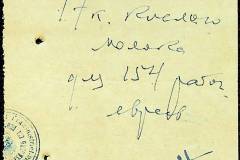 17 к. кислаго
молока
для 154 работ.
евреев